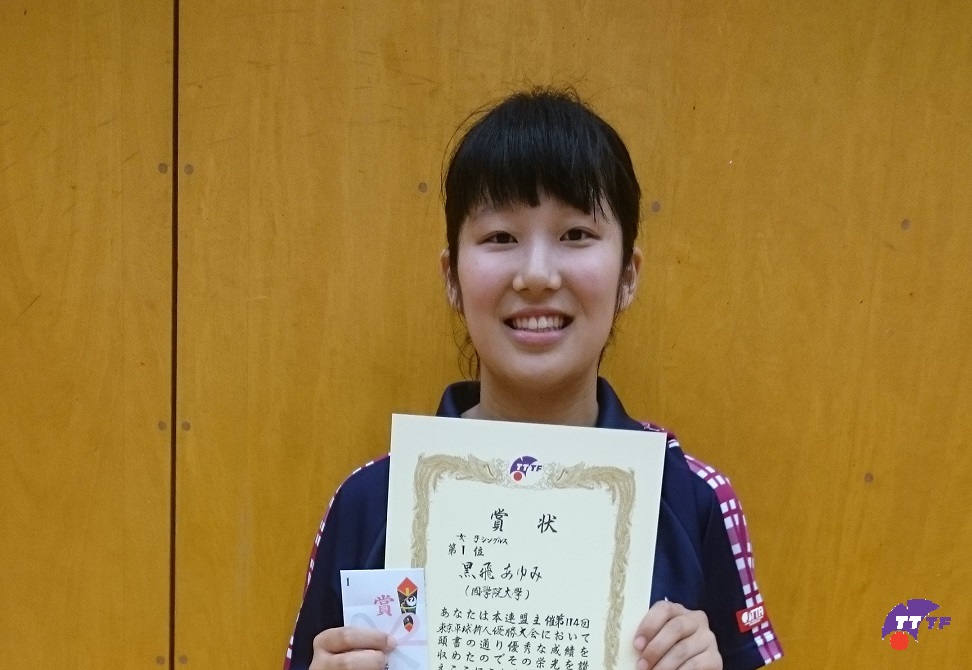 TTTF
賞 状
女子シングルス
第1位
黒飛 あゆみ
(國學院大學)
あなたは本連盟主催第114回
東京卓球新人優勝大会において
頭書の通り優秀な成績を
収めたのでその栄光を證
1
賞
TTTF